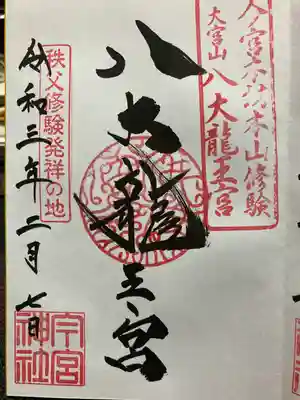 八大龍王宮
大宮山
八大龍王宮
秩父修験発祥の地
令和三年二月七日
今宮神社